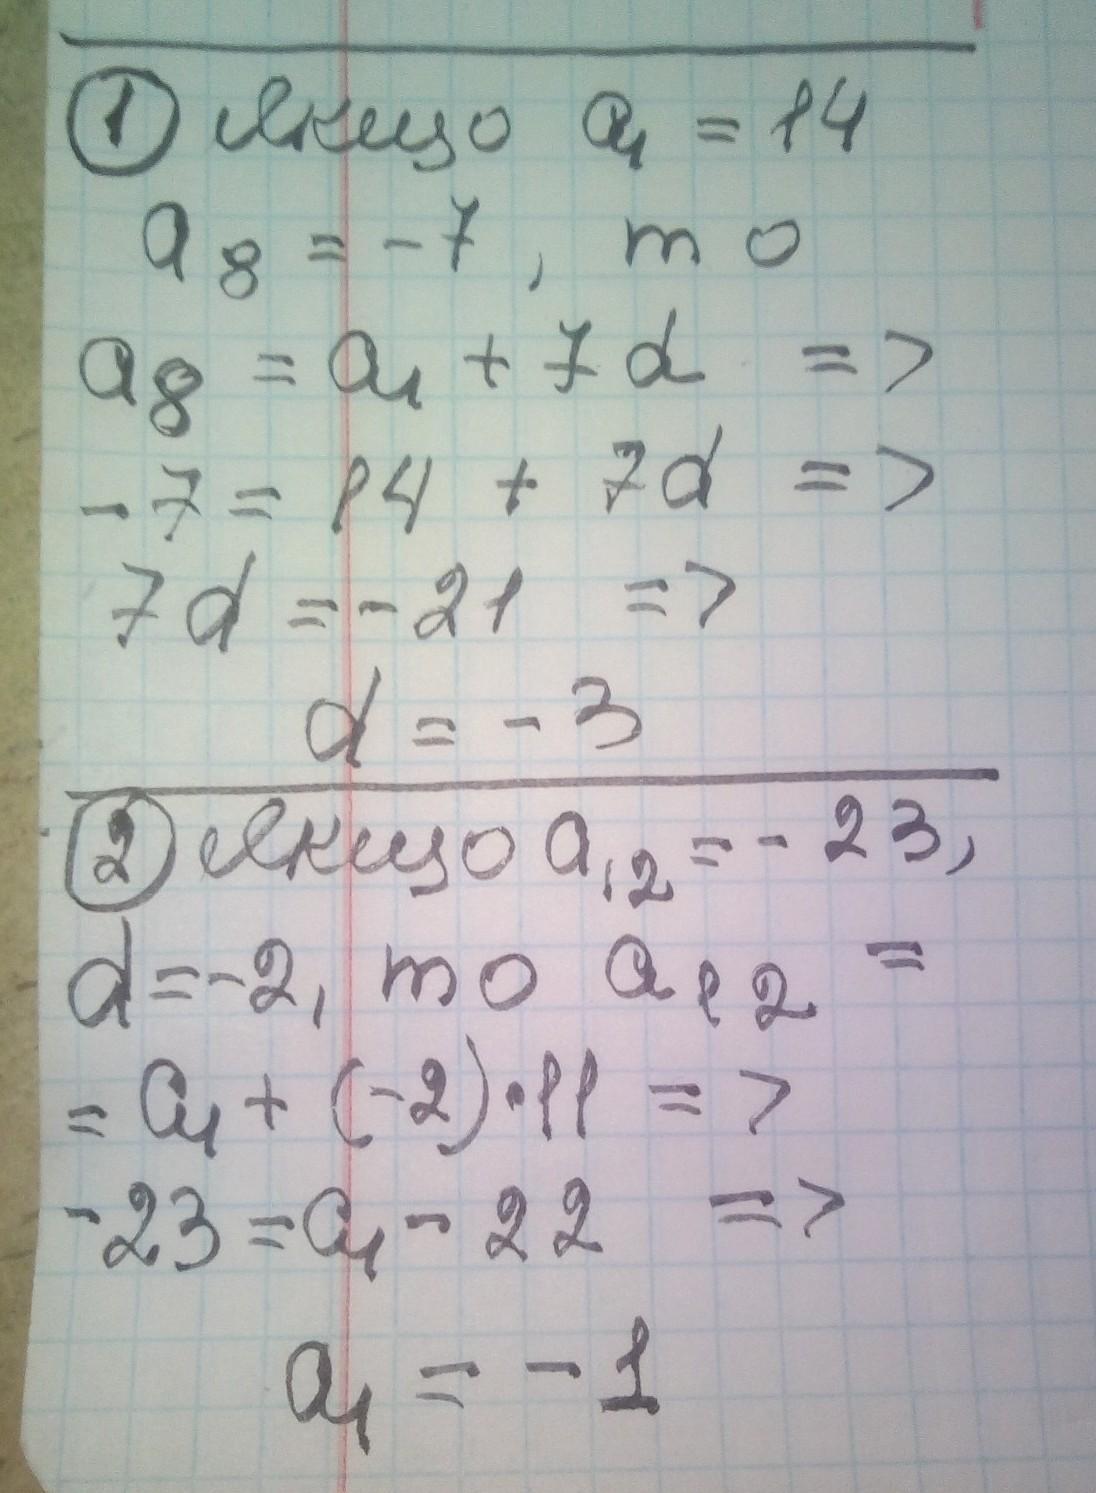 ① Якщо a₁ = 14
a₈ = -7, то
a₈ = a₁ + 7d =>
-7 = 14 + 7d =>
7d = -21 =>
d = -3
② Якщо a₁₂ = -23,
d = -2, то a₁₂ =
= a₁ + (-2)·11 =>
-23 = a₁ - 22 =>
a₁ = -1